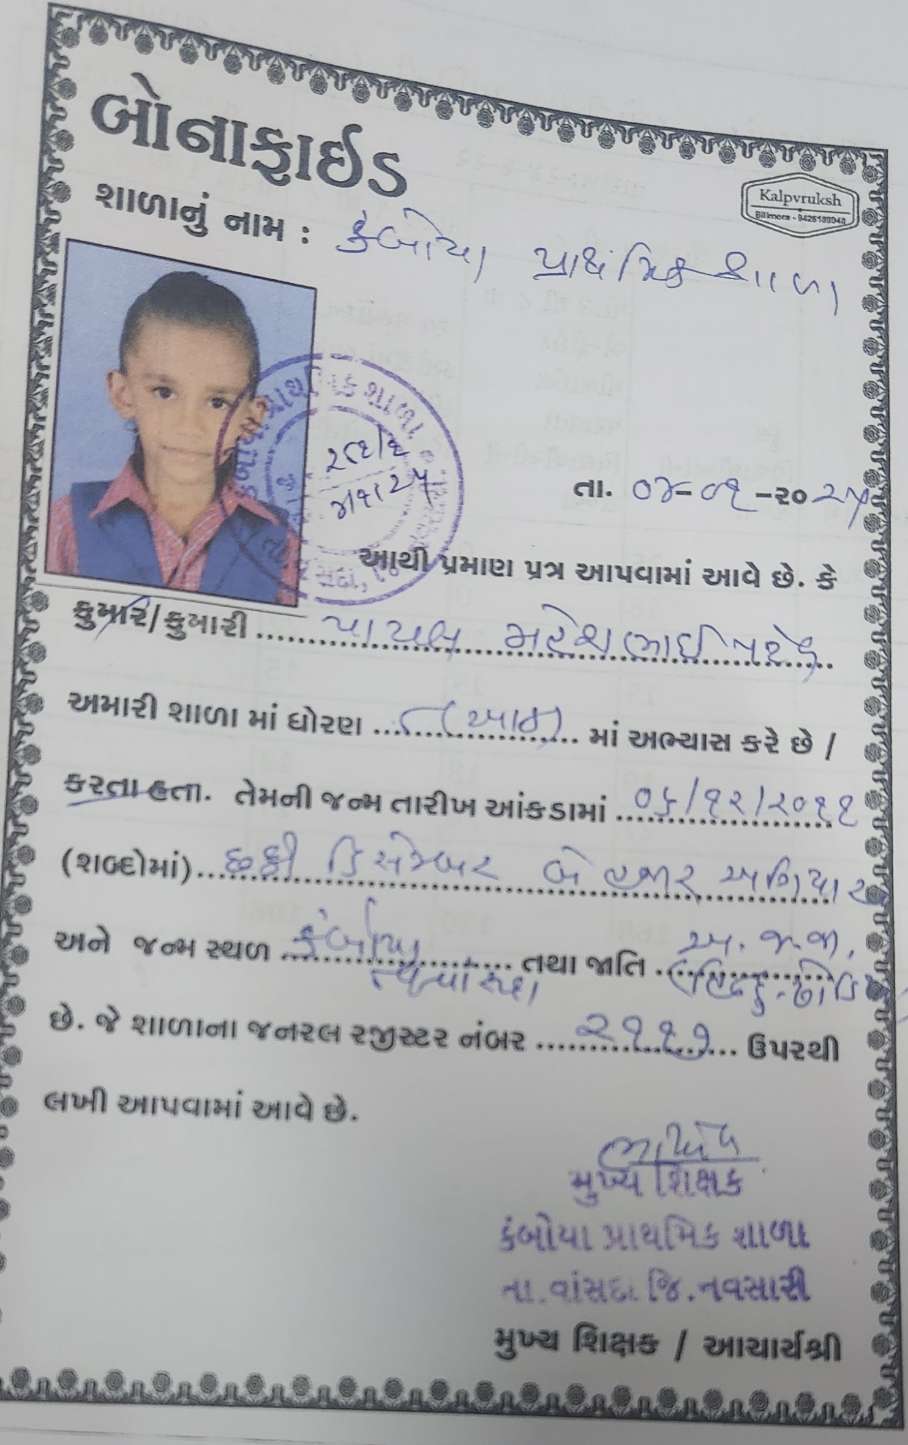 બોનાફાઈડ
Kalpvruksh
Bilimora - 9426189948
શાળાનું નામ : કંબોયા પ્રાથમિક શાળા
પ્રાથમિક શાળા
તા. ૦૪-૦૧-૨૦૨૫
આથી પ્રમાણ પત્ર આપવામાં આવે છે. કે
કુમાર/કુમારી પાયલ
અમારી શાળા માં ધોરણ ૮(આઠ) માં અભ્યાસ કરે છે /
કરતા હતા. તેમની જન્મ તારીખ આંકડામાં ૦૬/૧૨/૨૦૧૧
(શબ્દોમાં) છઠ્ઠી ડિસેમ્બર બે હજાર અગિયાર
અને જન્મ સ્થળ કંબોયા તથા જાતિ અ.જ.જા.
હિન્દુ-ધોડિયા
છે. જે શાળાના જનરલ રજીસ્ટર નંબર ૨૧૧૭ ઉપરથી
લખી આપવામાં આવે છે.
મુખ્ય શિક્ષક
કંબોયા પ્રાથમિક શાળા
તા.વાંસદા જિ.નવસારી
મુખ્ય શિક્ષક / આચાર્યશ્રી